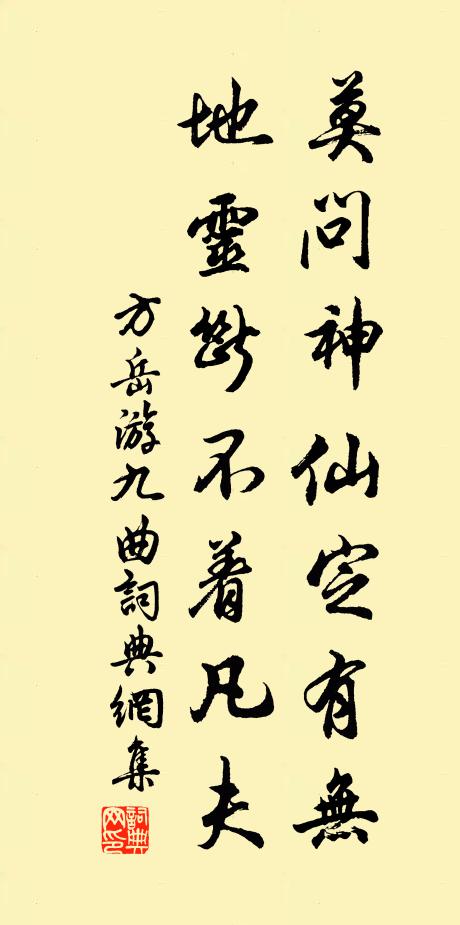 莫問神仙定有無
地靈斷不着凡夫
方岳游九曲詞典網集
詞典網印